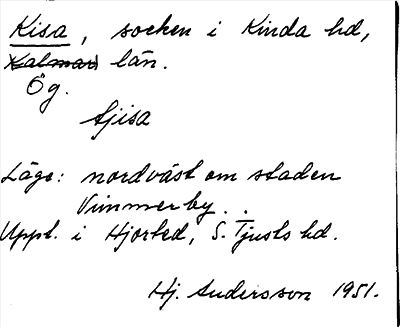 Kisa, socken i Kinda hd,
Kalmar län.
Ög.
tjisa
Läge: nordväst om staden
Vimmerby.
Uppt. i Hjorted, S. Tjusts hd.
Hj. Andersson 1951.